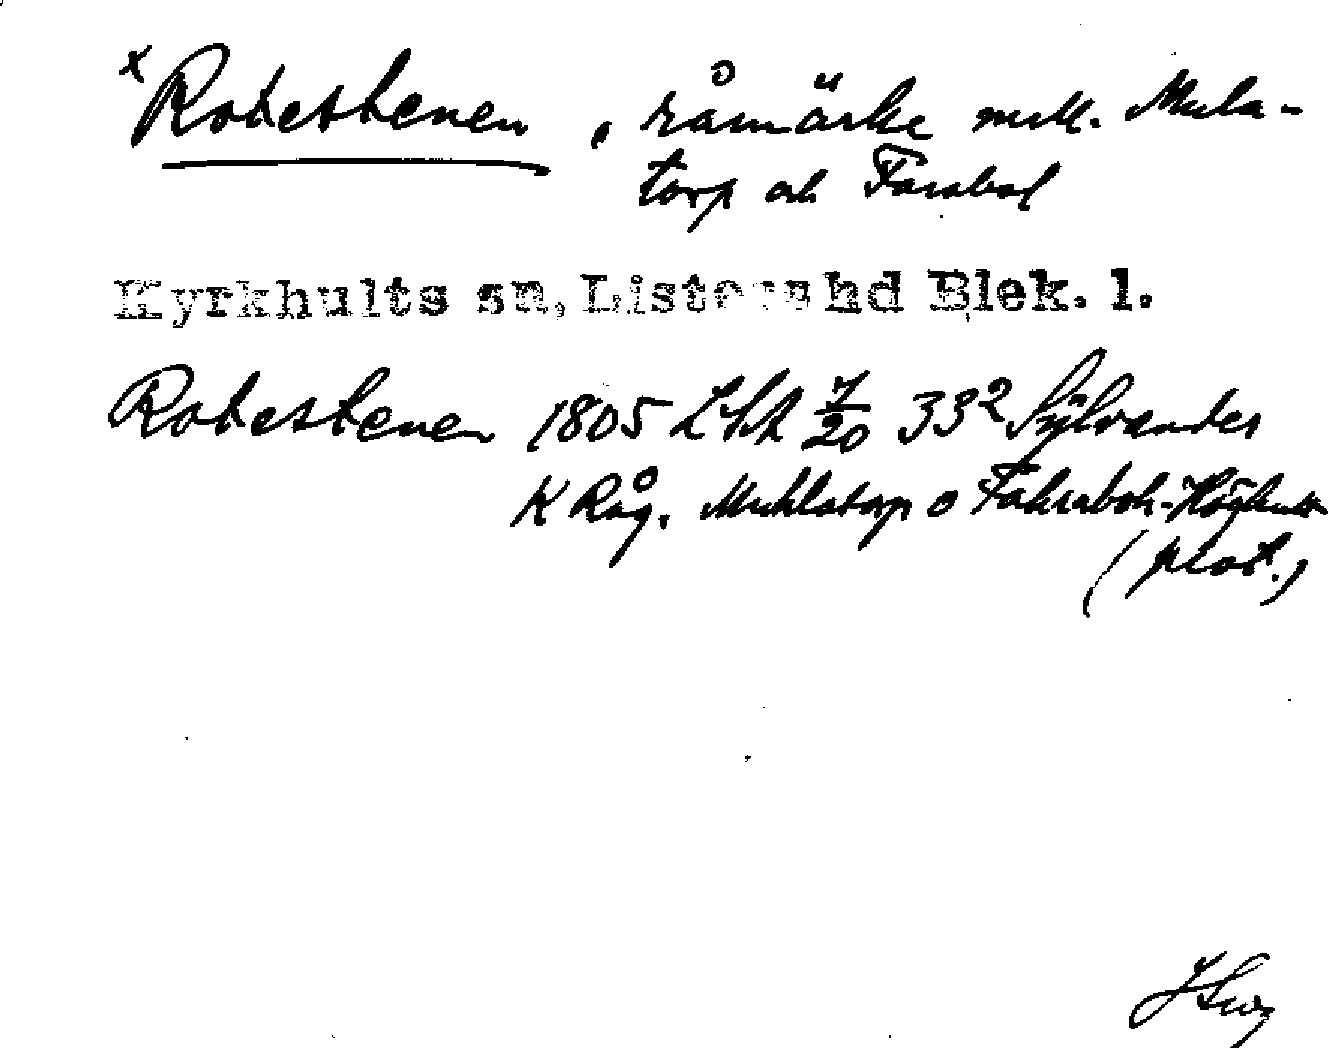 x Rotestenen, råmärke mell. Mula-
torp och Farabol
Kyrkhults sn, Listers hd Blek. l.
Rotestenen 1805 LSA 7/20 33² Sylvander
K Råg. Muhlatorp o Fahraboh-Höghult
(prot.)